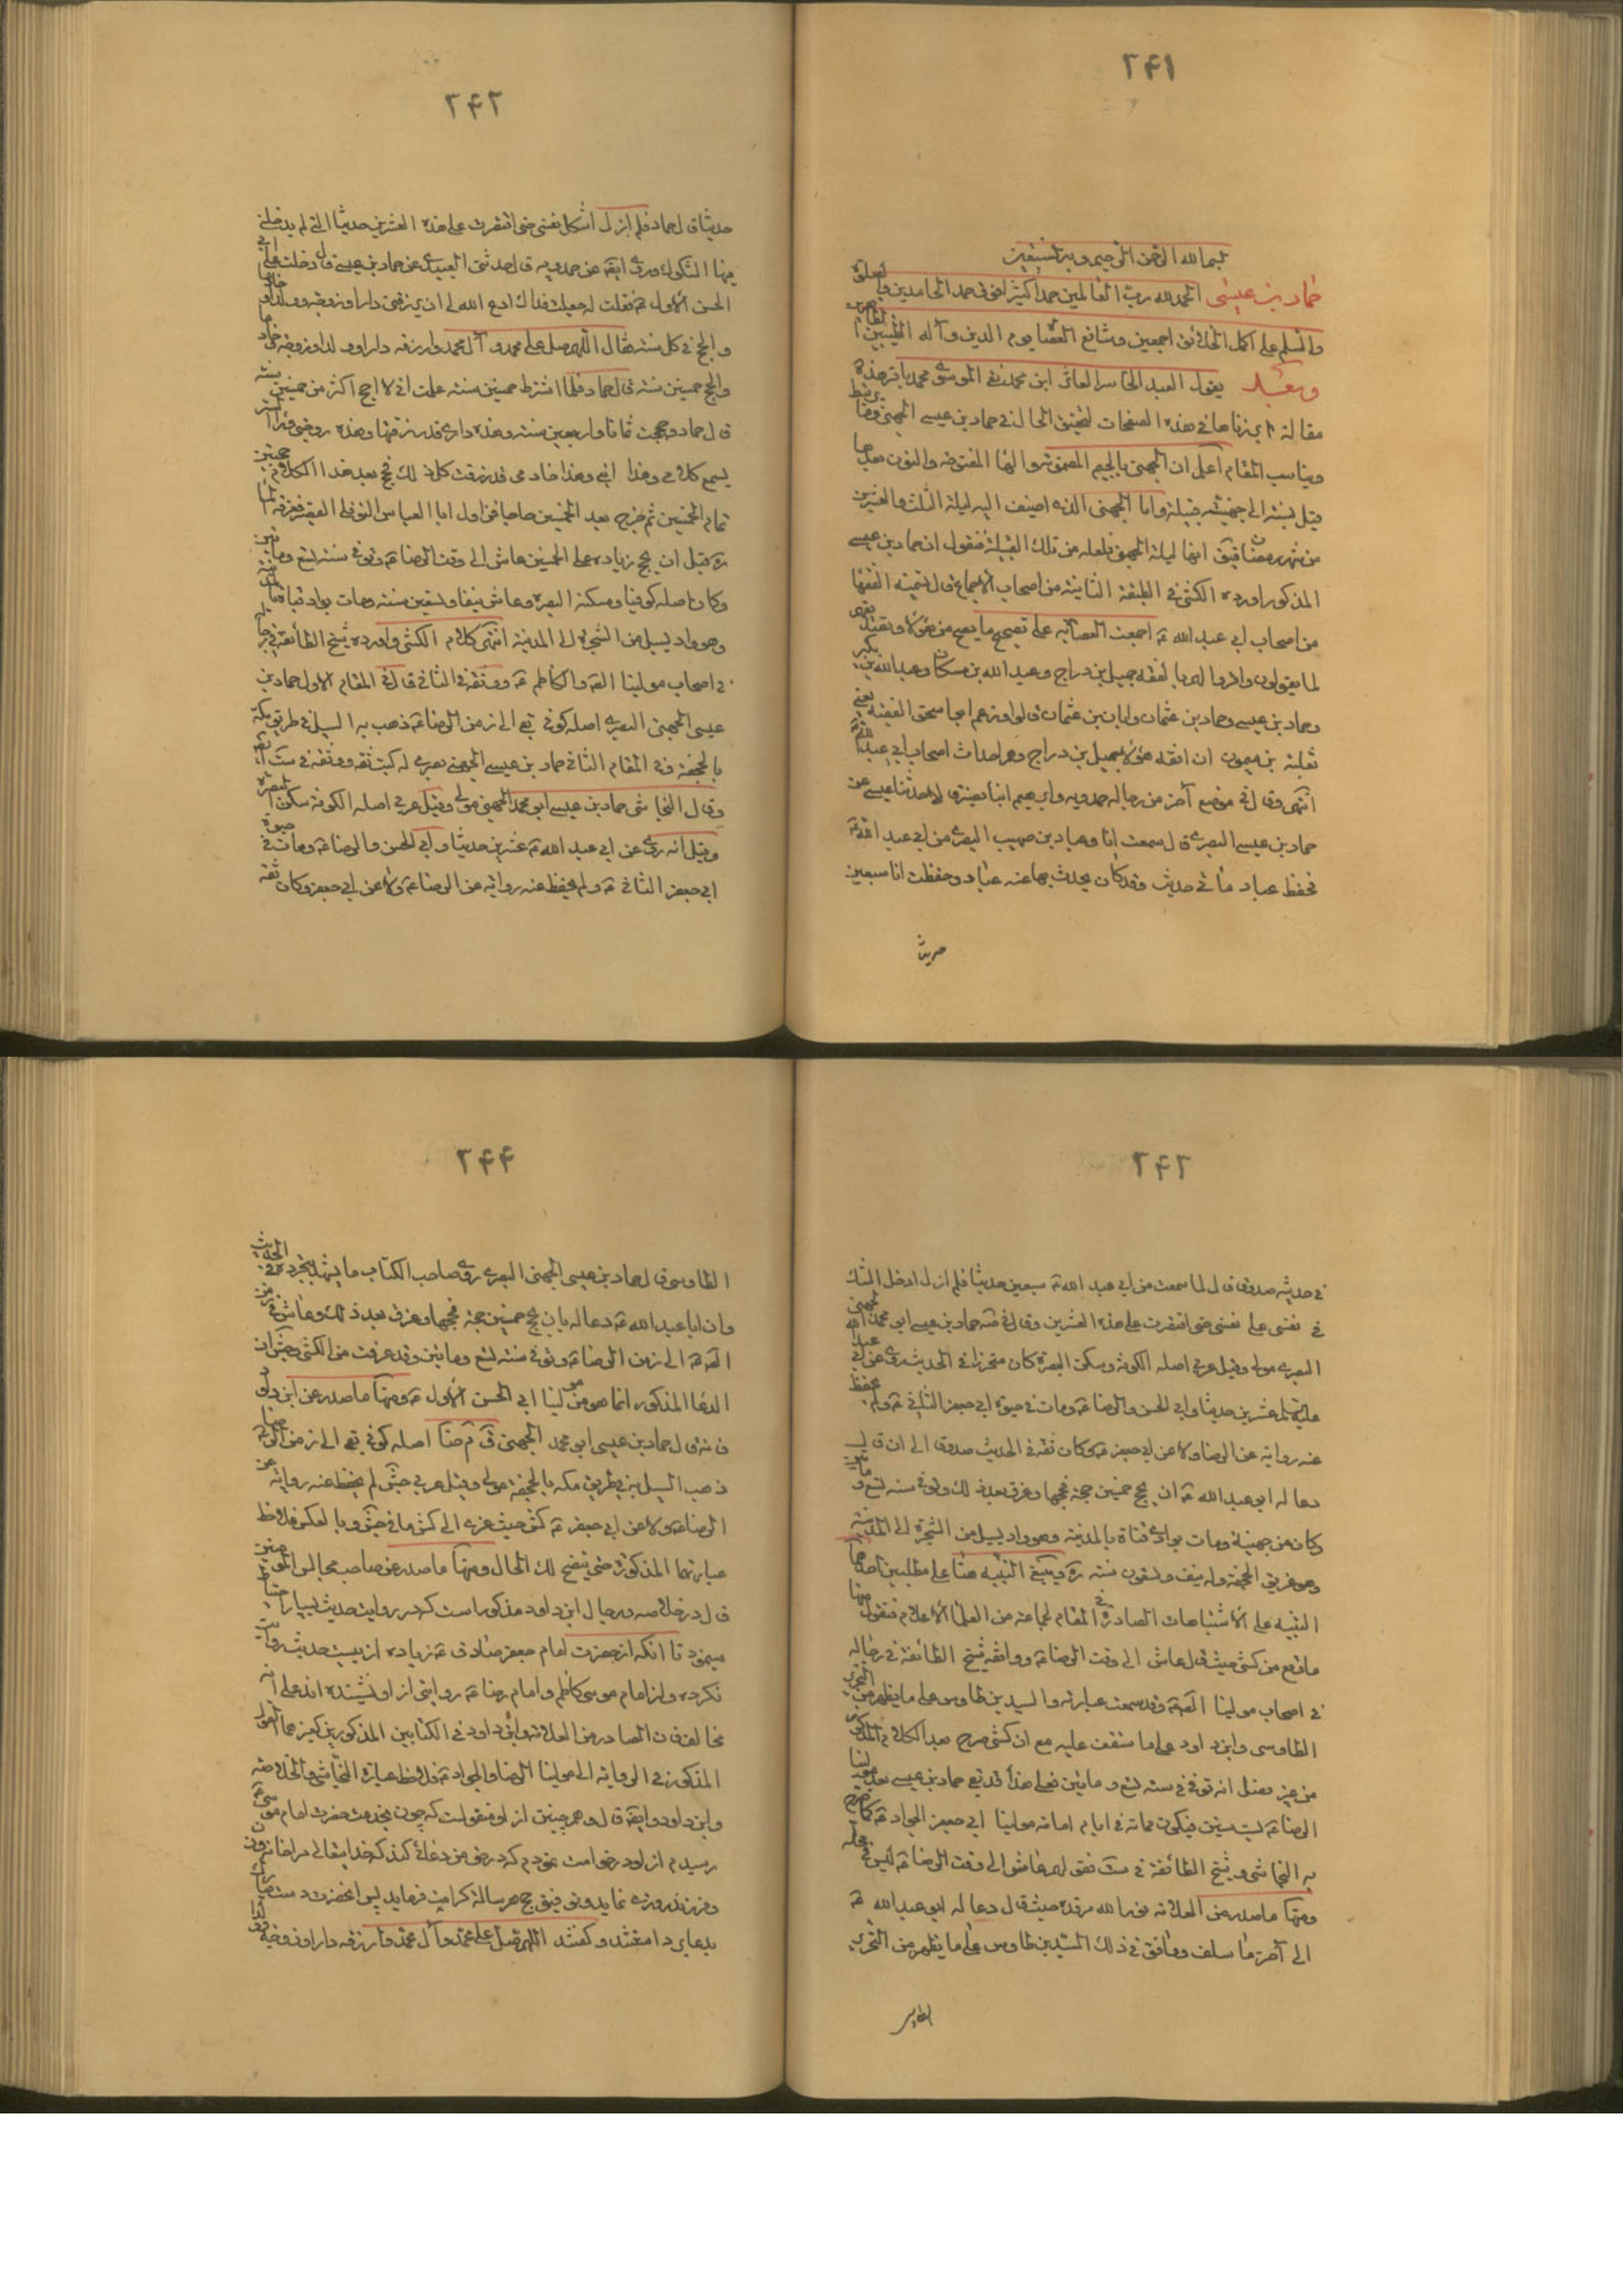 ۲۴۱
بسم الله الرحمن الرحيم وبه نستعين
حماد بن عيسى الحمد لله رب العالمين حمدا كثيرا فوق حمد الحامدين والصلوة
والسلم على اكمل الخلائق اجمعين وشافع العصاة يوم الدين وآله الطيبين الطاهرين
وبعد يقول العبد الخاسر العاثر ابن محمد نقى الموسوى محمد باقر هذه
مقالة ابرزناها في هذه الصفحات لتحقيق الحال في حماد بن عيسى الجهنى وما يرتبط
ويناسب المقام اعلم ان الجهنى بالجيم المضمومة والهاء المفتوحة والنون بعدها
قيل نسبة الى جهينة قبيلة واما الجهنى الذى اضيف اليه ليلة الثلث والعشرين
من شهر رمضان فيق انها ليلة الجهنى فلعله من تلك القبيلة فنقول ان حماد بن عيسى
المذكور اورده الكشى في الطبقة الثانية من اصحاب الاجماع قال تسمية الفقها
من اصحاب ابى عبد الله ع اجمعت العصابه على تصحيح ما يصح من هؤلاء وتصديقهم
لما يقولون واقروا لهم بالفقه جميل بن دراج وعبد الله بن مسكان وعبد الله بن بكير
وحماد بن عيسى وحماد بن عثمان وابان بن عثمان قالوا وزعم ابو اسحق الفقيه يعنى
ثعلبة بن ميمون ان افقه هؤلاء جميل بن دراج وهو احداث اصحاب ابى عبد الله ع
انتهى وقال في موضع آخر من رجاله حمدويه وابرهيم ابنا نصير قالا حدثنا عيسى عن
حماد بن عيسى البصرى قال سمعت انا وعباد بن صهيب البصرى من ابى عبد الله ع
فحفظ عباد مائتى حديث وقد كان يحدث بها عنه عباد وحفظت انا سبعين
حديثا
۲۴۲
حديثا قال حماد فلم ازل اشكل نفسى حتى اقتصرت على هذه العشرين حديثا التى لم يدخلنى
فيها الشكوك وروى ايضا عن حمدويه قال حدثنى العبيدى عن حماد بن عيسى قال دخلت على ابى
الحسن الاول ع فقلت له جعلت فداك ادع الله لى ان يرزقنى دارا وزوجة وولدا وخادما
والحج في كل سنة فقال اللهم صل على محمد وآل محمد وارزقه دارا وولدا وزوجة وخادما
والحج خمسين سنة قال حماد فلما اشترط خمسين سنة علمت انى لا احج اكثر من خمسين سنة
قال حماد وحججت ثمانا واربعين سنة وهذه دارى قد رزقتها وهذه زوجتى وراء الستر
يسمع كلامى وهذا ابنى وهذا خادمى قد رزقت كل ذلك فحج بعد هذا الكلام حجتين
تمام الخمسين ثم خرج بعد الخمسين حاجا فزامل ابا العباس النوفلى القصير فغرقه الماء
ره قبل ان يحج زيادة على الخمسين عاش الى وقت الرضا ع وتوفى سنة تسع ومائتين
وكان اصله كوفيا ومسكنه البصرة وعاش نيفا وتسعين سنة ومات بوادى قناة بالمدينة
وهو واد يسيل من الشجرة الى المدينة انتهى كلام الكشى واورده شيخ الطائفة في رجاله
في اصحاب مولينا الصادق والكاظم ع ووثقه في الثانى قال في المقام الاول حماد بن
عيسى الجهنى البصرى اصله كوفى بقى الى زمن الرضا ع ذهب به السيل في طريق مكة
بالجحفة وفى المقام الثانى حماد بن عيسى الجهنى بصرى له كتب ثقة ووثقه في ست ايضا
وقال النجاشى حماد بن عيسى ابو محمد الجهنى مولى وقيل عربى اصله الكوفة سكن البصرة
وقيل انه روى عن ابى عبد الله ع عشرين حديثا وابى الحسن والرضا ع ومات في حيوة
ابى جعفر الثانى ع ولم يحفظ عنه رواية عن الرضا ع ولا عن ابى جعفر وكان ثقة
۲۴۳
في حديثه صدوقا قال لما سمعت من ابى عبد الله ع سبعين حديثا فلم ازل ادخل الشك
في نفسى على نفسى حتى اقتصرت على هذه العشرين وقال في صه حماد بن عيسى ابو محمد الجهنى
البصرى مولى وقيل عربى اصله الكوفة وسكن البصرة كان متحرزا في الحديث روى عن ابى عبد الله
عليه السلم عشرين حديثا وابى الحسن والرضا ع ومات في حيوة ابى جعفر الثانى ع ولم يحفظ
عنه رواية عن الرضا ولا عن ابى جعفر ع وكان ثقة في الحديث صدوقا الى ان قال
دعا له ابو عبد الله ع ان يحج خمسين حجة فحجها وغرق بعد ذلك وتوفى سنة تسع ومائتين
وكان من جهينة ومات بوادى قناة بالمدينة وهو واد يسيل من الشجرة الى المدينة
وهو غريق الجحفة وله نيف وتسعون سنة ره وينبغى التنبيه هنا على مطلبين احدهما
التنبيه على الاشتباهات الصادرة في المقام لجماعة من العلماء الاعلام فنقول منها
ما وقع من كش حيث قال عاش الى وقت الرضا ع ووافقه شيخ الطائفة في رجاله
في اصحاب مولينا الصادق ع وقد سمعت عبارته والسيد بن طاوس على ما يظهر من التحرير
الطاوسى وابن داود على ما ستقف عليه مع ان كش صرح بعد الكلام المذكور
من غير فصل انه توفى في سنة تسع ومائتين فعلى هذا قد بقى حماد بن عيسى بعد مولينا
الرضا ع بست سنين فيكون مماته في ايام امامة مولينا ابى جعفر الجواد ع كما صرح
به النجاشى وشيخ الطائفة في ست فقولهم عاش الى وقت الرضا ع ليس في محله
ومنها ما صدر من العلامة نور الله مرقده حيث قال دعا له ابو عبد الله ع
الى آخر ما سلف ووافق في ذلك السيد بن طاوس على ما يظهر من التحرير
الطاوسى
۲۴۴
الطاوسى قال حماد بن عيسى الجهنى البصرى روى صاحب الكتاب ما يشهد بتحرزه في الحديث
وان ابا عبد الله ع دعا له بان يحج خمسين حجة فحجها وغرق بعد ذلك وعاش من زمن
الصادق ع الى زمن الرضا ع وتوفى سنة تسع ومائتين وقد عرفت من الكشى وجش ان
الدعا المذكور انما هو من مولينا ابى الحسن الاول ع ومنها ما صدر عن ابن داود
فانه قال حماد بن عيسى ابو محمد الجهنى ق م ضا اصله كوفى بقى الى زمن الرضا ع
ذهب السيل به في طريق مكه بالجحفة مولى وقيل عربى جش لم يحفظ عنه رواية عن
الرضا ع ولا عن ابى جعفر ع كش حيث عزى الى كش ما في جش وبالعكس فلاحظ
عبارتهما المذكورة حتى يتضح لك الحال ومنها ما صدر عن صاحب مجالس المؤمنين
قال در خلاصه ورجال ابن داود مذكور است كه در روايت حديث بسيار احتياط
مينمود تا آنكه از حضرت امام جعفر صادق ع زياده از بيست حديث روايت
نكرده واز امام موسى كاظم وامام رضا ع روايتى از او نشنيده اند على انه
مخالف فان الصادر من العلامة وابن داود في الكتابين المذكورين كغيرهما العدول
المذكور في الرواية الى مولينا الرضا والجواد ع فلاحظ عبارة النجاشى والخلاصه
وابن داود وايضا قال وهمچنين از او منقولست كه چون بخدمت حضرت امام موسى ع
رسيدم از او درخواست نمودم كه در حق من دعائى كند كه خدايتعالى مرا خانه وزن
وفرزند روزى نمايد وتوفيق حج هر ساله كرامت فرمايد پس انحضرت دست مبارك
بدعا برداشتند وكفتند اللهم صل على محمد وآل محمد وارزقه دارا وزوجة وولدا